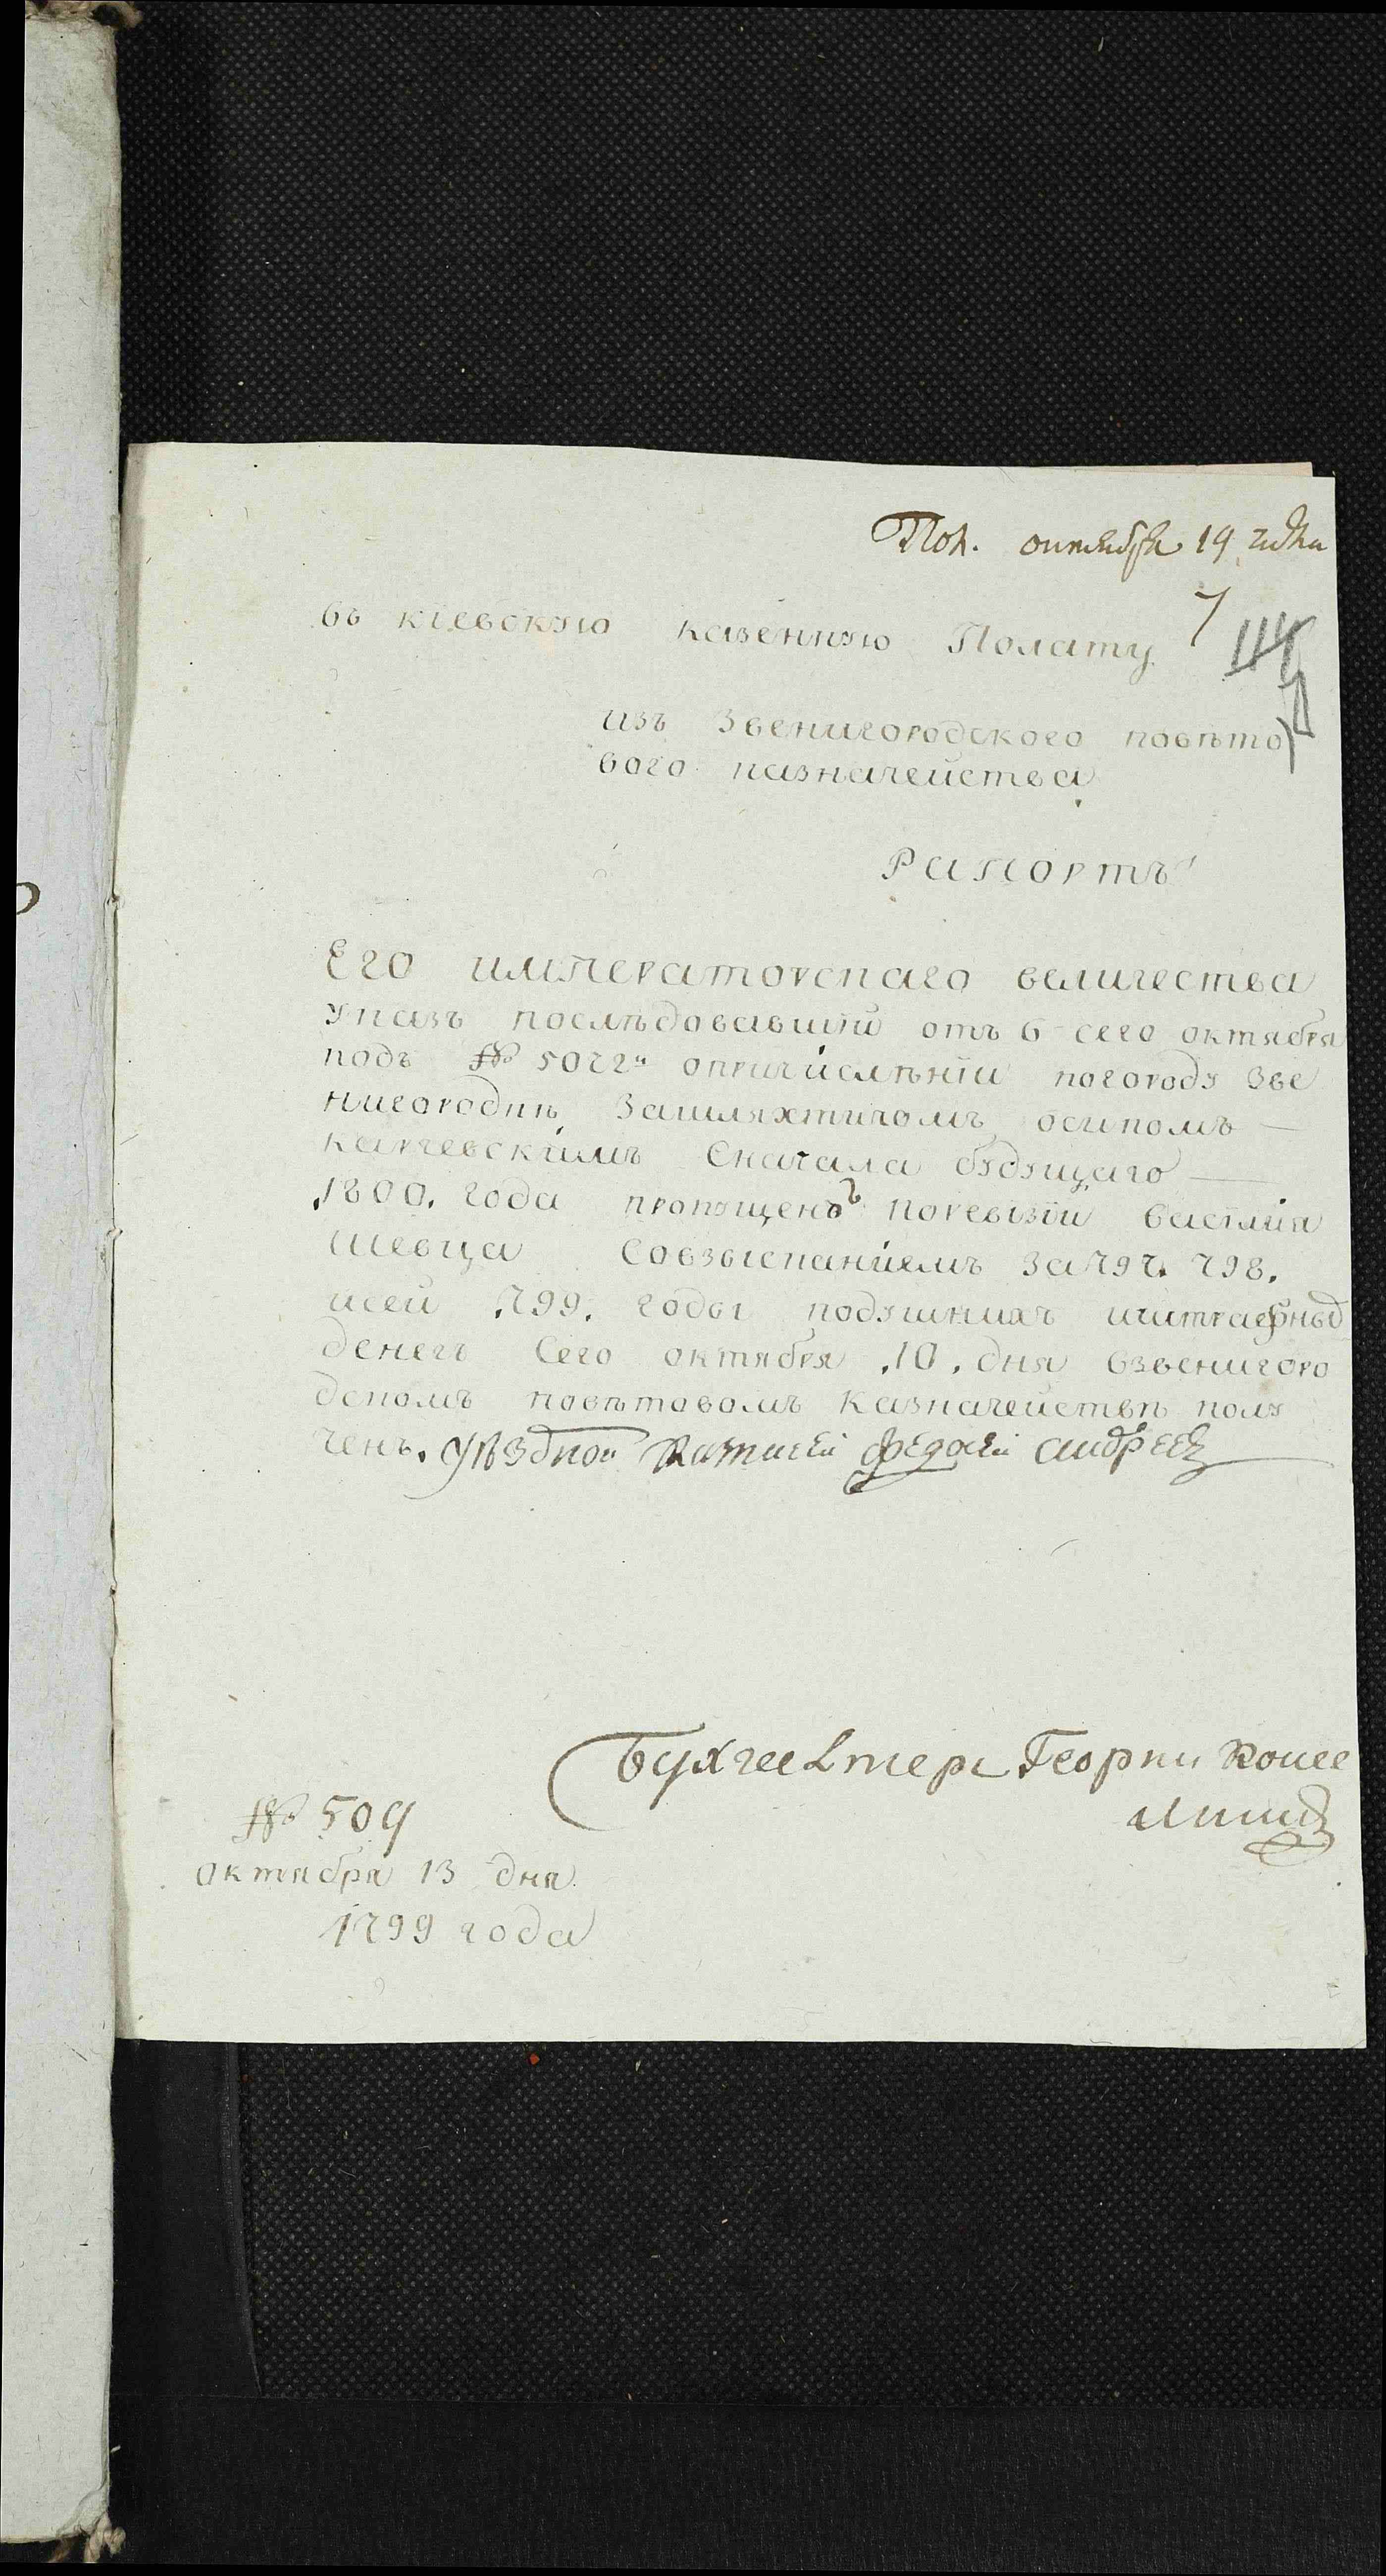 Пол. октября 19 дня
7
въ кіевскую казенную Полату
изъ Звенигородского повѣто
вого казначейства
Рапортъ
Его императорскаго величества
указъ послѣдовавшій отъ 6 сего октября
подъ № 5072м опричисленіи погороду Зве
нигородкѣ Зашляхтичомъ осипомъ
Сначала будущаго
1800. года пропущенъ поревизіи василія
шевца Совзысканіемъ За797. 798.
исей .799. годы подушнихъ иштрафныхъ
денегъ Сего октября .10. дня взвенигоро
дскомъ повѣтовомъ Казначействѣ полу
ченъ. уѣздной Казначей федосѣй андрѣевъ
бухгалтеръ Георги
№ 509
октября 13 дня
1799 года